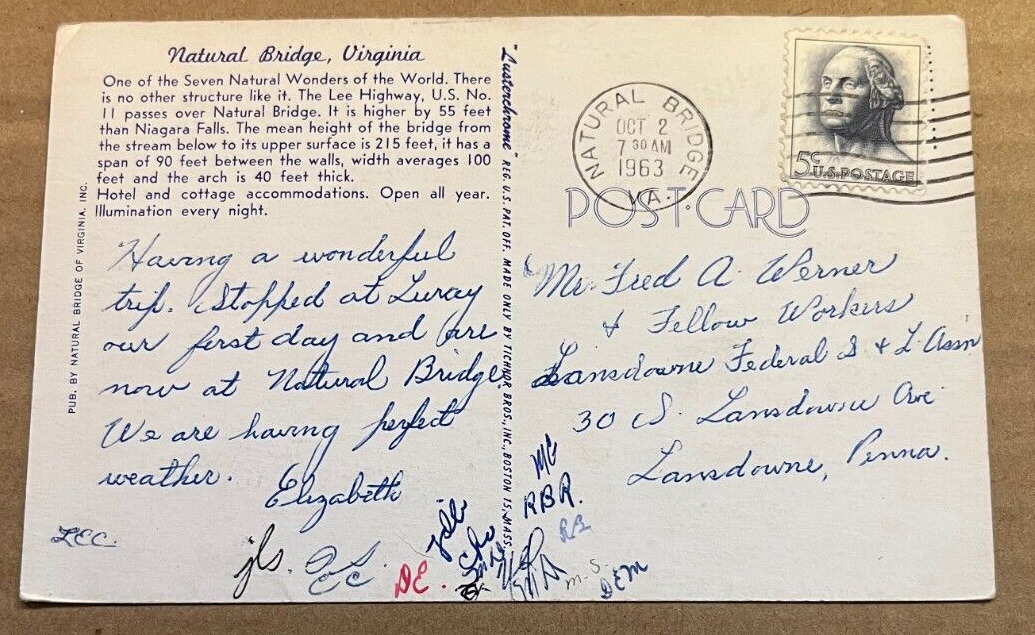 Natural Bridge, Virginia
One of the Seven Natural Wonders of the World. There
is no other structure like it. The Lee Highway, U.S. No.
11 passes over Natural Bridge. It is higher by 55 feet
than Niagara Falls. The mean height of the bridge from
the stream below to its upper surface is 215 feet, it has a
span of 90 feet between the walls, width averages 100
feet and the arch is 40 feet thick.
Hotel and cottage accommodations. Open all year.
Illumination every night.
PUB. BY NATURAL BRIDGE OF VIRGINIA, INC.
Having a wonderful
trip. Stopped at Luray
our first day and are
now at Natural Bridge.
We are having perfect
weather.
Elizabeth
"Lusterchrome" REG. U.S. PAT. OFF. MADE ONLY BY TICHNOR BROS., INC., BOSTON 15, MASS.
NATURAL BRIDGE
OCT 2
7 30 AM
1963
VA.
5c
U.S. POSTAGE
POST CARD
Mr. Fred A. Werner
& Fellow Workers
Lansdowne Federal S & L Assn
30 S. Lansdowne Ave
Lansdowne, Penna.
LCC.
jls.
DE.
MG
RBR.
RB
m.S.
DEM